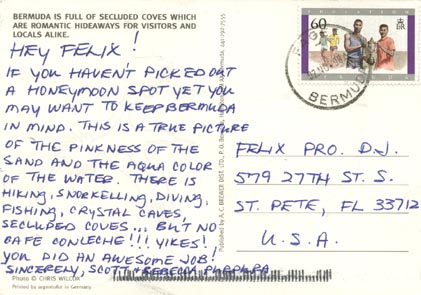 BERMUDA IS FULL OF SECLUDED COVES WHICH
ARE ROMANTIC HIDEAWAYS FOR VISITORS AND
LOCALS ALIKE.
HEY FELIX!
IF YOU HAVEN'T PICKED OUT
A HONEYMOON SPOT YET YOU
MAY WANT TO KEEP BERMUDA
IN MIND. THIS IS A TRUE PICTURE
OF THE PINKNESS OF THE
SAND AND THE AQUA COLOR
OF THE WATER. THERE IS
HIKING, SNORKELLING, DIVING,
FISHING, CRYSTAL CAVES,
SECLUDED COVES... BUT NO
CAFE CON LECHE!!! YIKES!
YOU DID AN AWESOME JOB!
SINCERELY, SCOTT + REBECCA
Photo © CHRIS WILCOX
Printed by argentofot in Germany
Published by A. C. BREWER DIST. LTD., P.O. Bermuda, 441-292-7535
60
BERMUDA
FELIX PRO. D.J.
579 27TH ST. S.
ST. PETE, FL 33712
U.S.A.